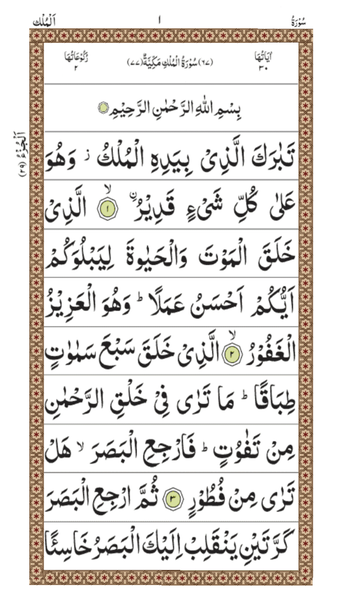 سُوْرَةُ ١ اَلْمُلْك
اٰيَاتُهَا ٣٠ (٦٧) سُوْرَةُ الْمُلْكِ مَكِّيَّةٌ (٧٧) رُكُوْعَاتُهَا ٢
بِسْمِ اللهِ الرَّحْمٰنِ الرَّحِيْمِ
تَبٰرَكَ الَّذِىْ بِيَدِهِ الْمُلْكُ ز وَهُوَ
عَلٰى كُلِّ شَىْءٍ قَدِيْرُ ۨ ۙ ١ الَّذِىْ
خَلَقَ الْمَوْتَ وَالْحَيٰوةَ لِيَبْلُوَكُمْ
اَيُّكُمْ اَحْسَنُ عَمَلًا ؕ وَهُوَ الْعَزِيْزُ
الْغَفُوْرُ ۙ ٢ الَّذِىْ خَلَقَ سَبْعَ سَمٰوٰتٍ
طِبَاقًا ؕ مَا تَرٰى فِىْ خَلْقِ الرَّحْمٰنِ
مِنْ تَفٰوُتٍ ؕ فَارْجِعِ الْبَصَرَ ۙ هَلْ
تَرٰى مِنْ فُطُوْرٍ ٣ ثُمَّ ارْجِعِ الْبَصَرَ
كَرَّتَيْنِ يَنْقَلِبْ اِلَيْكَ الْبَصَرُ خَاسِئًا
اَلْجُزْءُ (٢٩)